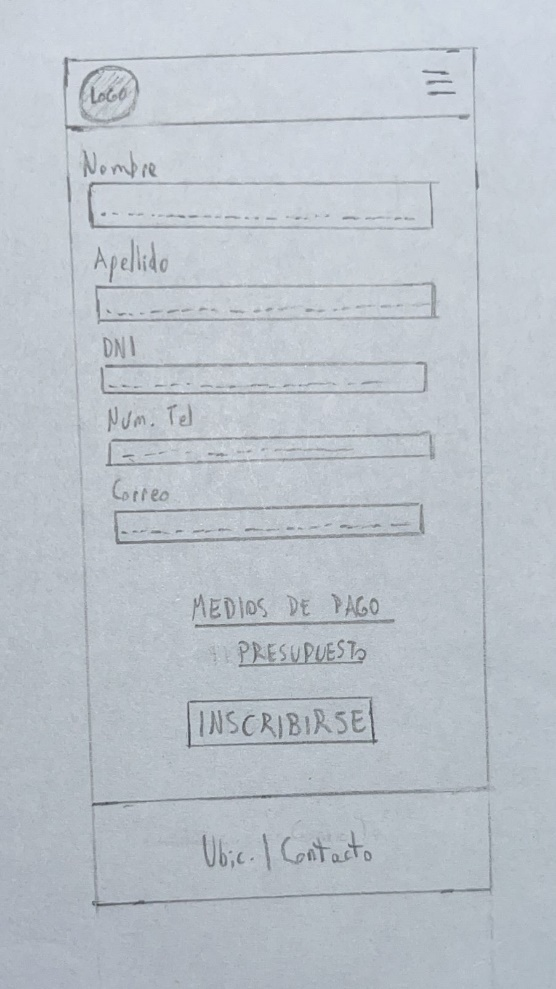 LOGO
Nombre
Apellido
DNI
Num. Tel
Correo
MEDIOS DE PAGO
PRESUPUESTO
INSCRIBIRSE
Ubic. | Contacto